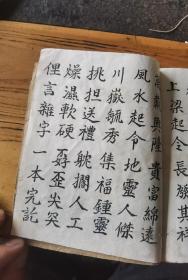 上梁起令長發其祥
興隆 貴富綿遠
風水起令 地靈人傑
川嶽毓秀 集福鍾靈
挑担送禮 躭擱人工
燥濕軟硬 歪尖突
俚言雜字 一本完訖